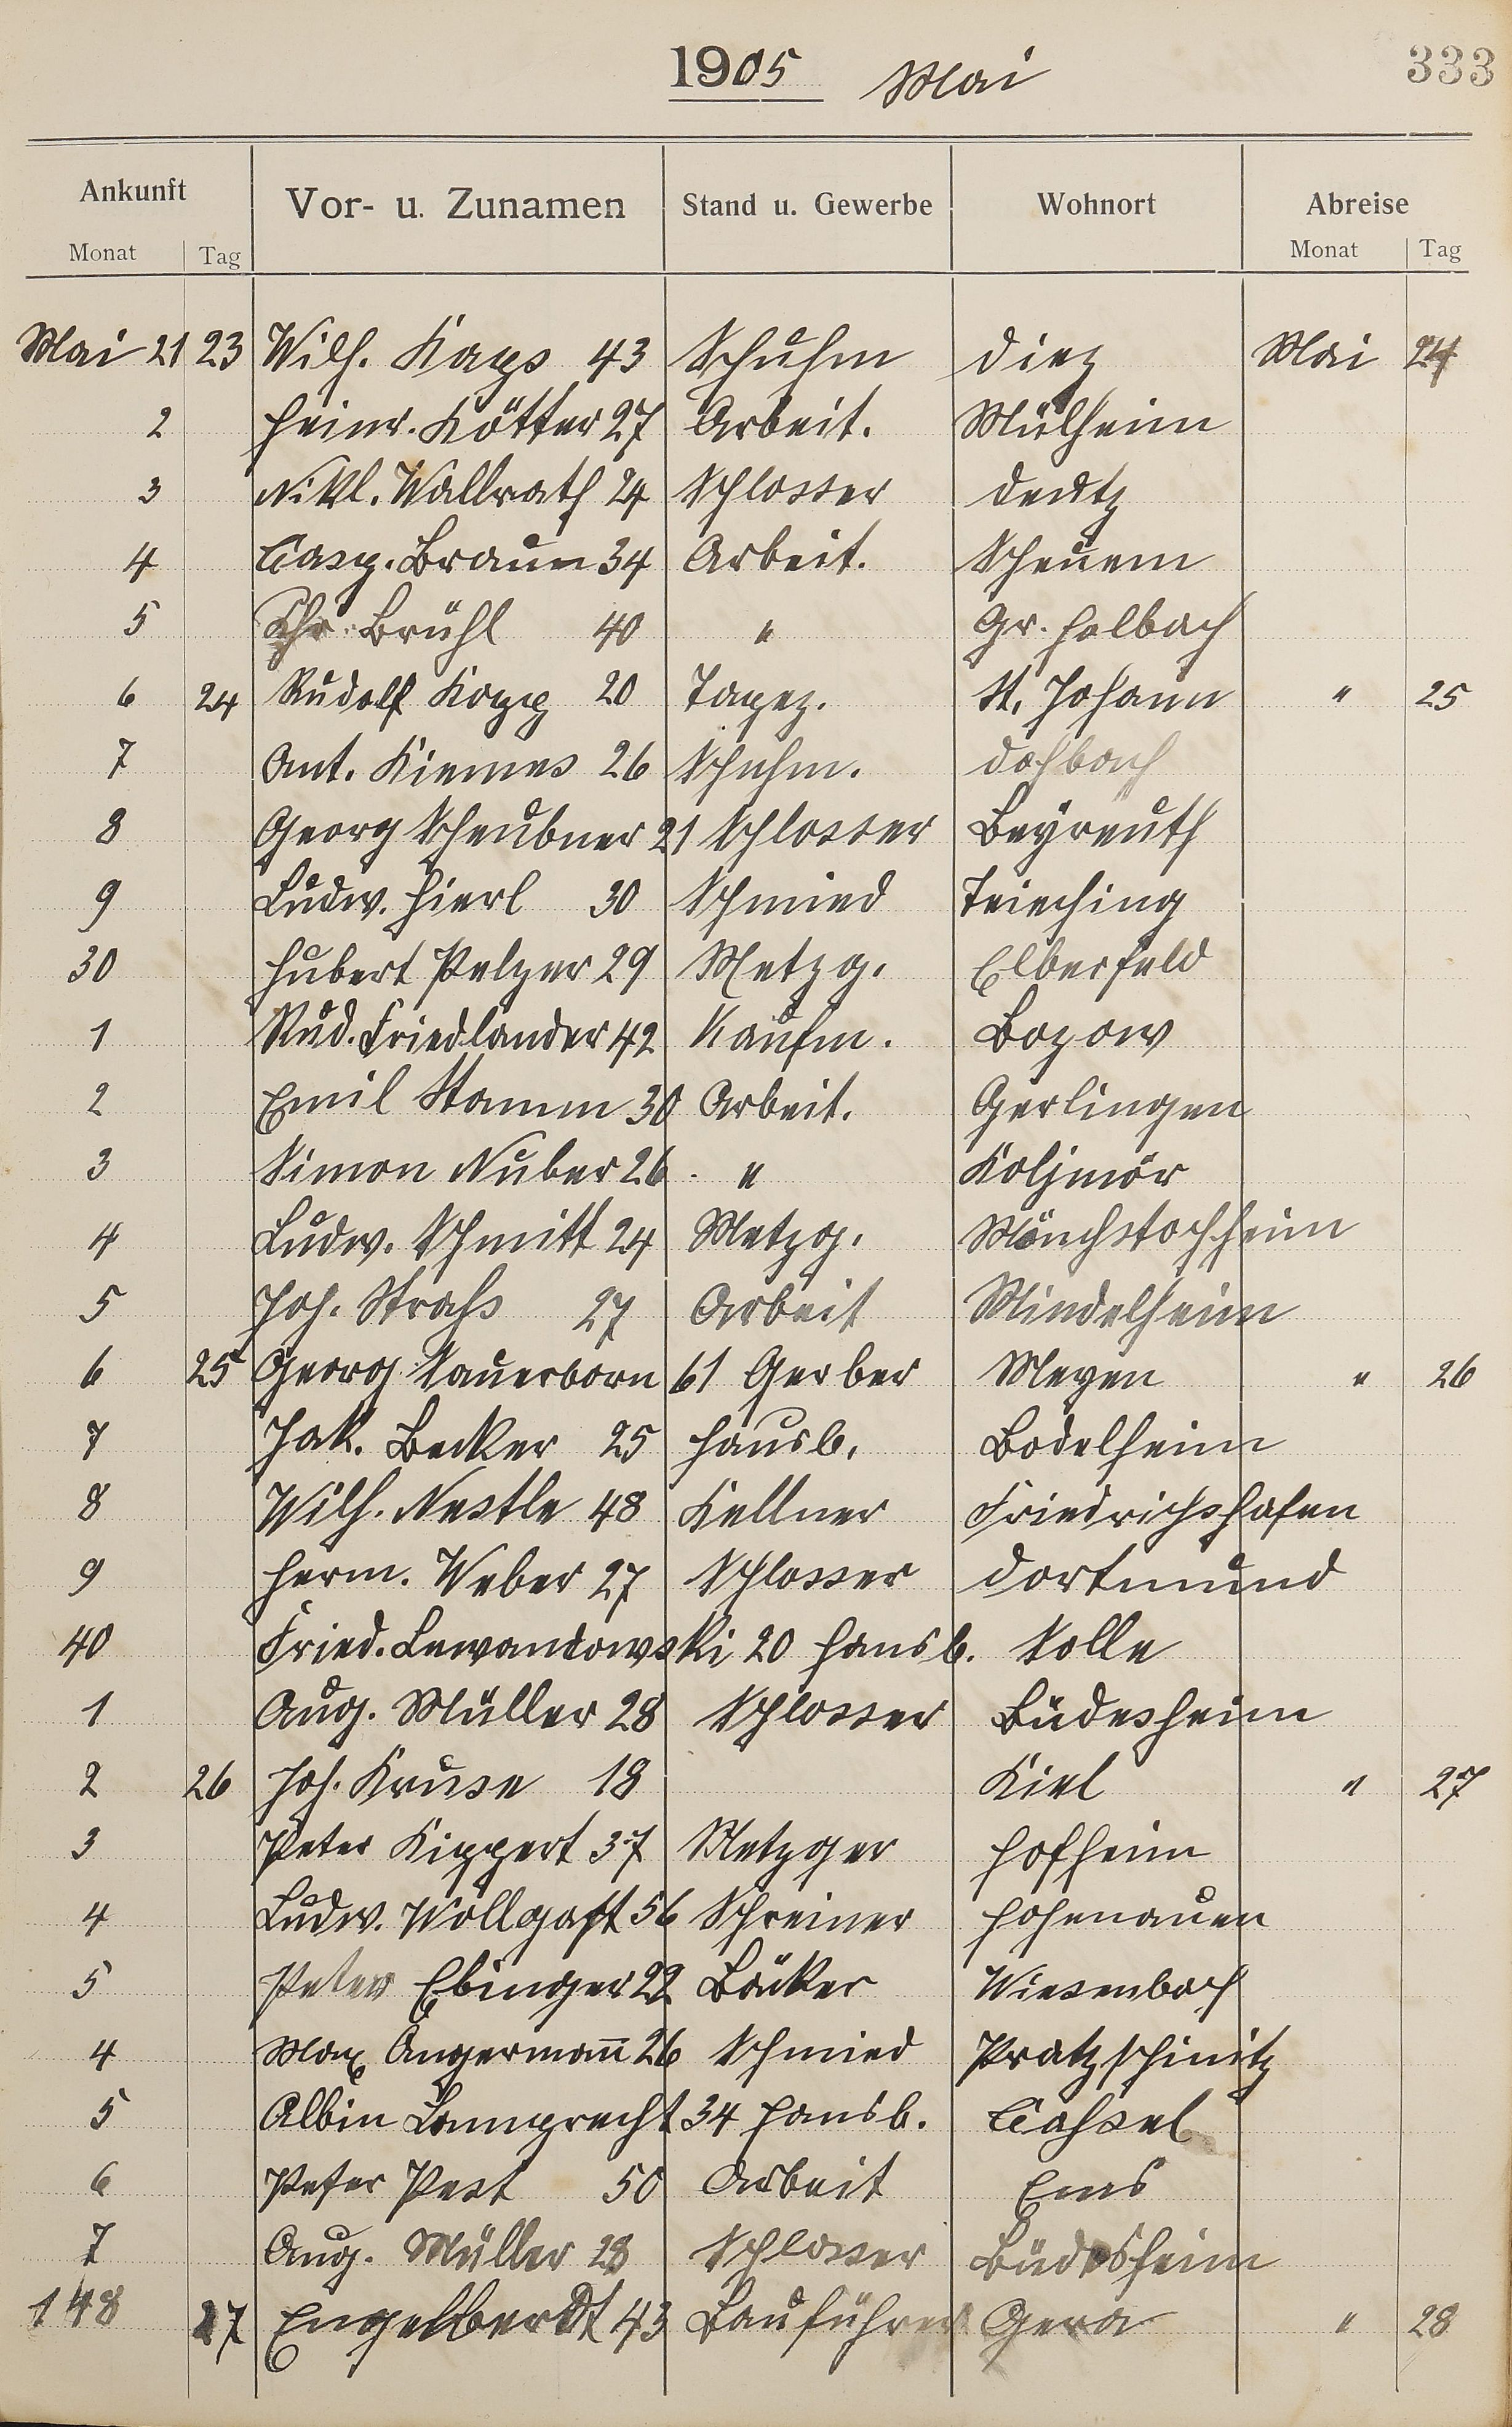 1905 Mai 333
Ankunft Vor- u. Zunamen Stand u. Gewerbe Wohnort Abreise
Monat Tag Monat Tag
Mai 21 23 Wilh. Kaps 43 Schuhm Diez Mai 24
2 Heinr. Kötter 27 Arbeit. Mülheim
3 Nikl. Wallrath 24 Schlosser Deutz
4 Casp. Braun 34 Arbeit. Scheuern
5 Chr. Brühl 40 " Gr. Holbach
6 24 Rudolf Kopp 20 Tapez. St. Johann " 25
7 Ant. Kiemes 26 Schuhm. Dohbach
8 Georg Scheubner 21 Schlosser Beyreuth
9 Ludw. Hierl 30 Schmied Teisching
30 Hubert Pelzer 29 Metzg. Elberfeld
1 Rud. Friedlander 42 Kaufm. Bozow
2 Emil Stamm 30 Arbeit. Gerlingen
3 Simon Nuber 26 " Kolzmör
4 Ludw. Schmitt 24 Metzg. Mönchstockheim
5 Joh. Strahs 27 Arbeit Mindelheim
6 25 Georg Sauerborn 61 Gerber Meyen " 26
7 Jak. Becker 25 Hausb. Bodelheim
8 Wilh. Nestle 48 Kellner Friedrichshafen
9 Herm. Weber 27 Schlosser Dortmund
40 Fried. Lewandowski 20 Hausb. Solle
1 Aug. Müller 28 Schlosser Büdesheim
2 26 Joh. Kruse 18 Kiel " 27
3 Peter Kippert 37 Metzger Hofheim
4 Ludw. Wollgast 56 Schreiner Hohenauen
5 Peter Ebinger 22 Bäcker Wiesenbach
4 Max Angermañ 26 Schmied Pratzschwitz
5 Albin Lamprecht 34 Hausb. Cahsel
6 Peter Pest 50 Arbeit Ems
7 Aug. Müller 28 Schlosser Büdesheim
148 27 Engelberdt 43 Bauführer Gera " 28